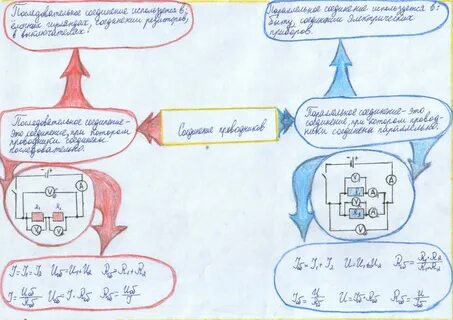 Последовательное соединение используется в:
ёлочных гирляндах, соединении резисторов,
в выключателях.
Параллельное соединение используется в:
быту, соединении электрических
приборов.
Последовательное соединение-
это соединение, при котором
проводники соединены
последовательно.
Соединение проводников
Параллельное соединение- это
соединение, при котором провод-
ники соединены параллельно.
A
V
R₁ R₂
V V
V
R₁ A
V
R₂ A
V
I=I₁=I₂ Uоб=U₁+U₂ Rоб=R₁+R₂
I=Uоб/Rоб Uоб=I·Rоб Rоб=Uоб/I
Iоб=I₁+I₂
Iоб=U/Rоб U=Iоб·Rоб Rоб=U/Iоб